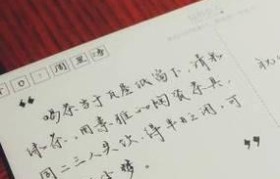 TO:周
“
喝茶当于瓦屋纸窗下,清泉
绿茶,用素雅的陶瓷茶具,
同二三人共饮,得半日之闲,可
尘梦。
”
祝